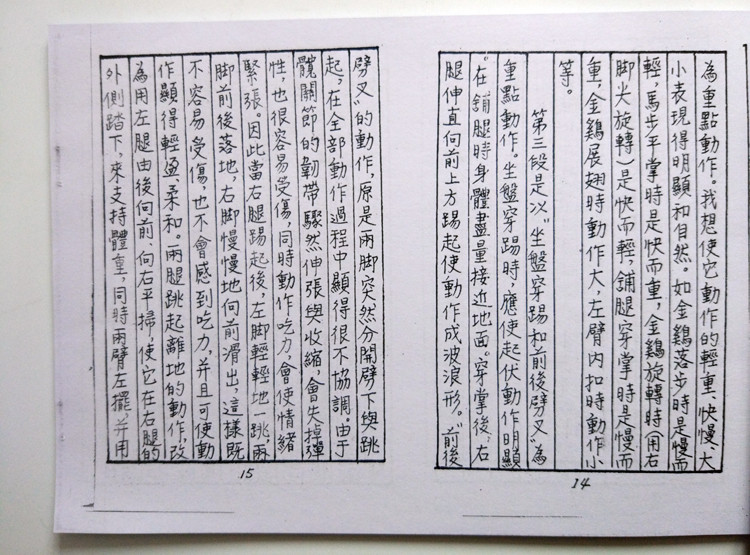 為重點動作。我想使它動作的輕重、快慢、大
小表現得明顯和自然。如金鷄落步時是慢而
輕，馬步平掌時是快而重，金鷄旋轉時（用右
脚尖旋轉）是快而輕，鋪腿穿掌時是慢而
重，金鷄展翅時動作大，左臂内扣時動作小
等。
第三段是以“坐盤穿踢和前後劈叉”為
重點動作。坐盤穿踢時，應使起伏動作明顯
。在鋪腿時身體盡量接近地面。穿掌後，右
腿伸直向前上方踢起使動作成波浪形。“前後
14
劈叉”的動作，原是兩脚突然分開劈下與跳
起，在全部動作過程中顯得很不協調。由于
髖關節的韌帶驟然伸張與收縮，會失掉彈
性，也很容易受傷，同時動作吃力，會使情緒
緊張。因此當右腿踢起後，左脚輕輕地一跳，兩
脚前後落地，右脚慢慢地向前滑出，這樣既
不容易受傷，也不會感到吃力，并且可使動
作顯得輕盈、柔和。兩腿跳起離地的動作，改
為用左腿由後向前、向右平掃，使它在右腿的
外側踏下，來支持體重，同時兩臂左擺，并用
15